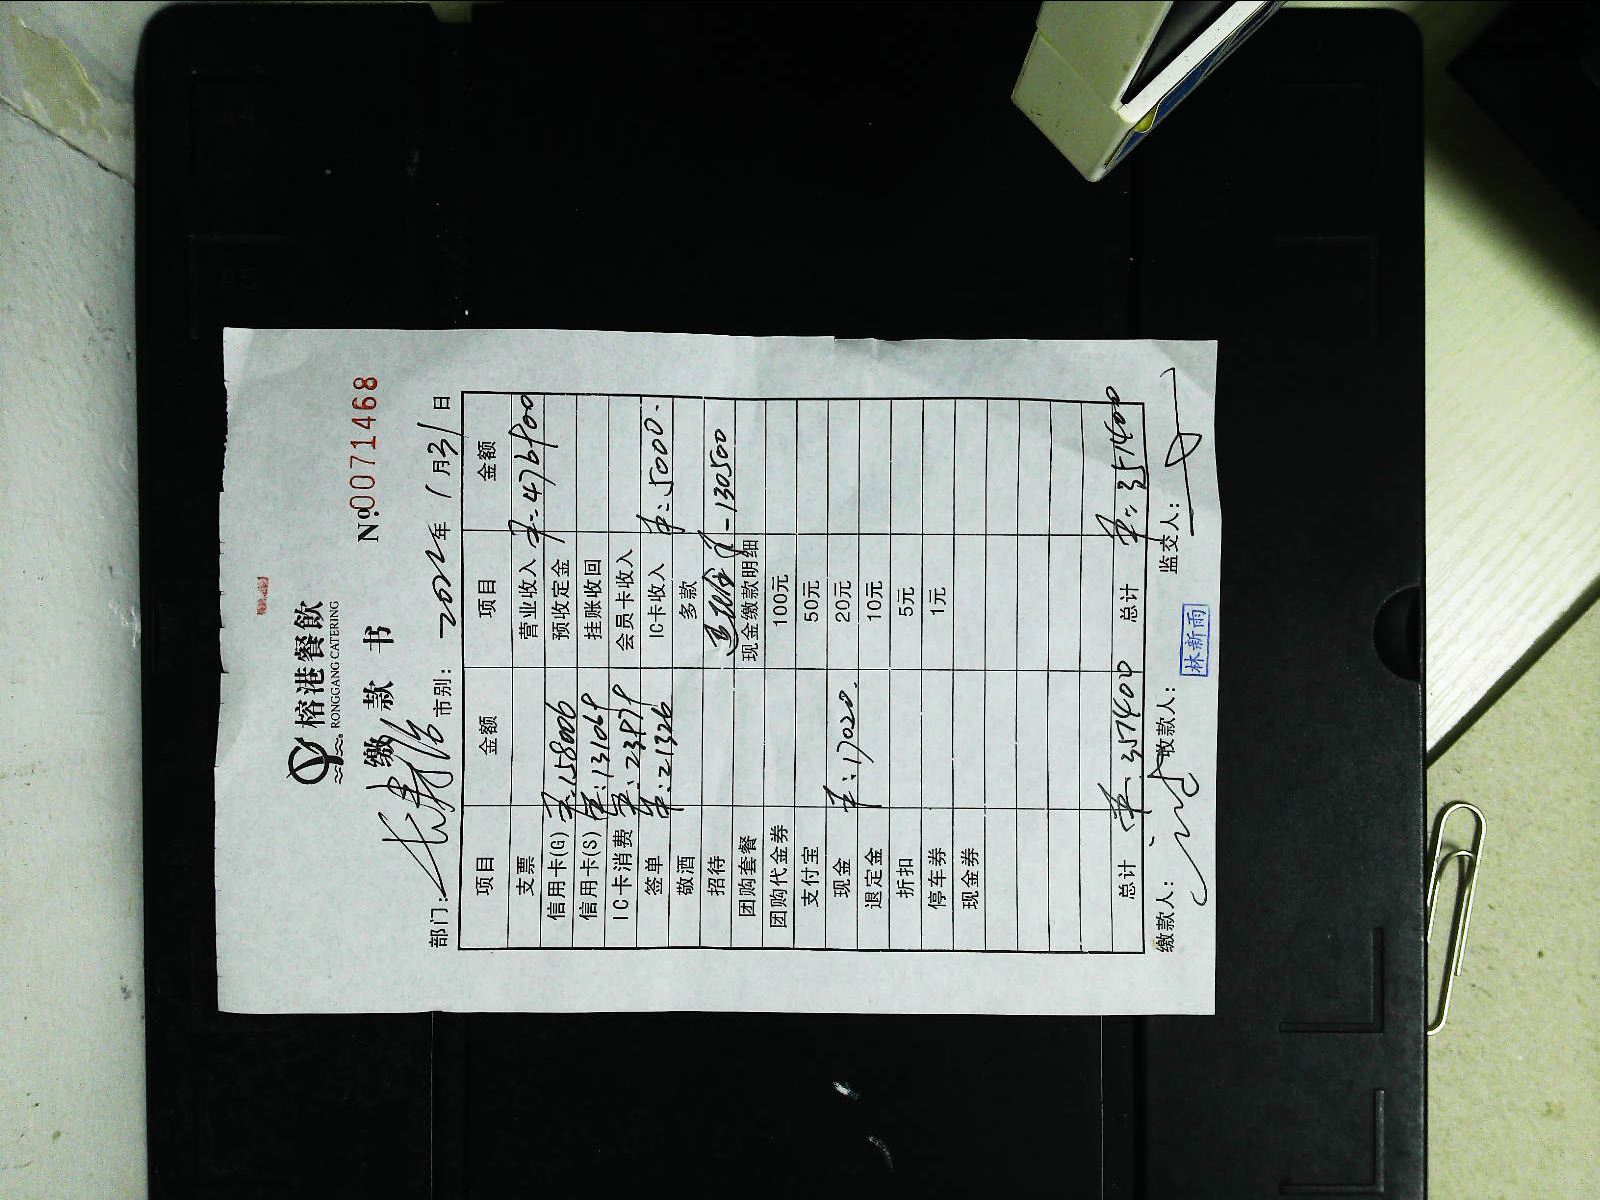 榕港餐飲
RONGGANG CATERING
缴 款 书
Nº:0071468
部门: 市别: 2022年 1月31日
项目 金额 项目 金额
支票 营业收入
信用卡(G) 158006 预收定金
信用卡(S) 131069 挂账收回
IC卡消费 会员卡收入
签单 21326 IC卡收入 5000.
敬酒 多款
招待 -130500
团购套餐 现金缴款明细
团购代金券 100元
支付宝 50元
现金 17020. 20元
退定金 10元
折扣 5元
停车券 1元
现金券
总计 351400 总计 351400
缴款人: 收款人: 林新雨 监交人: